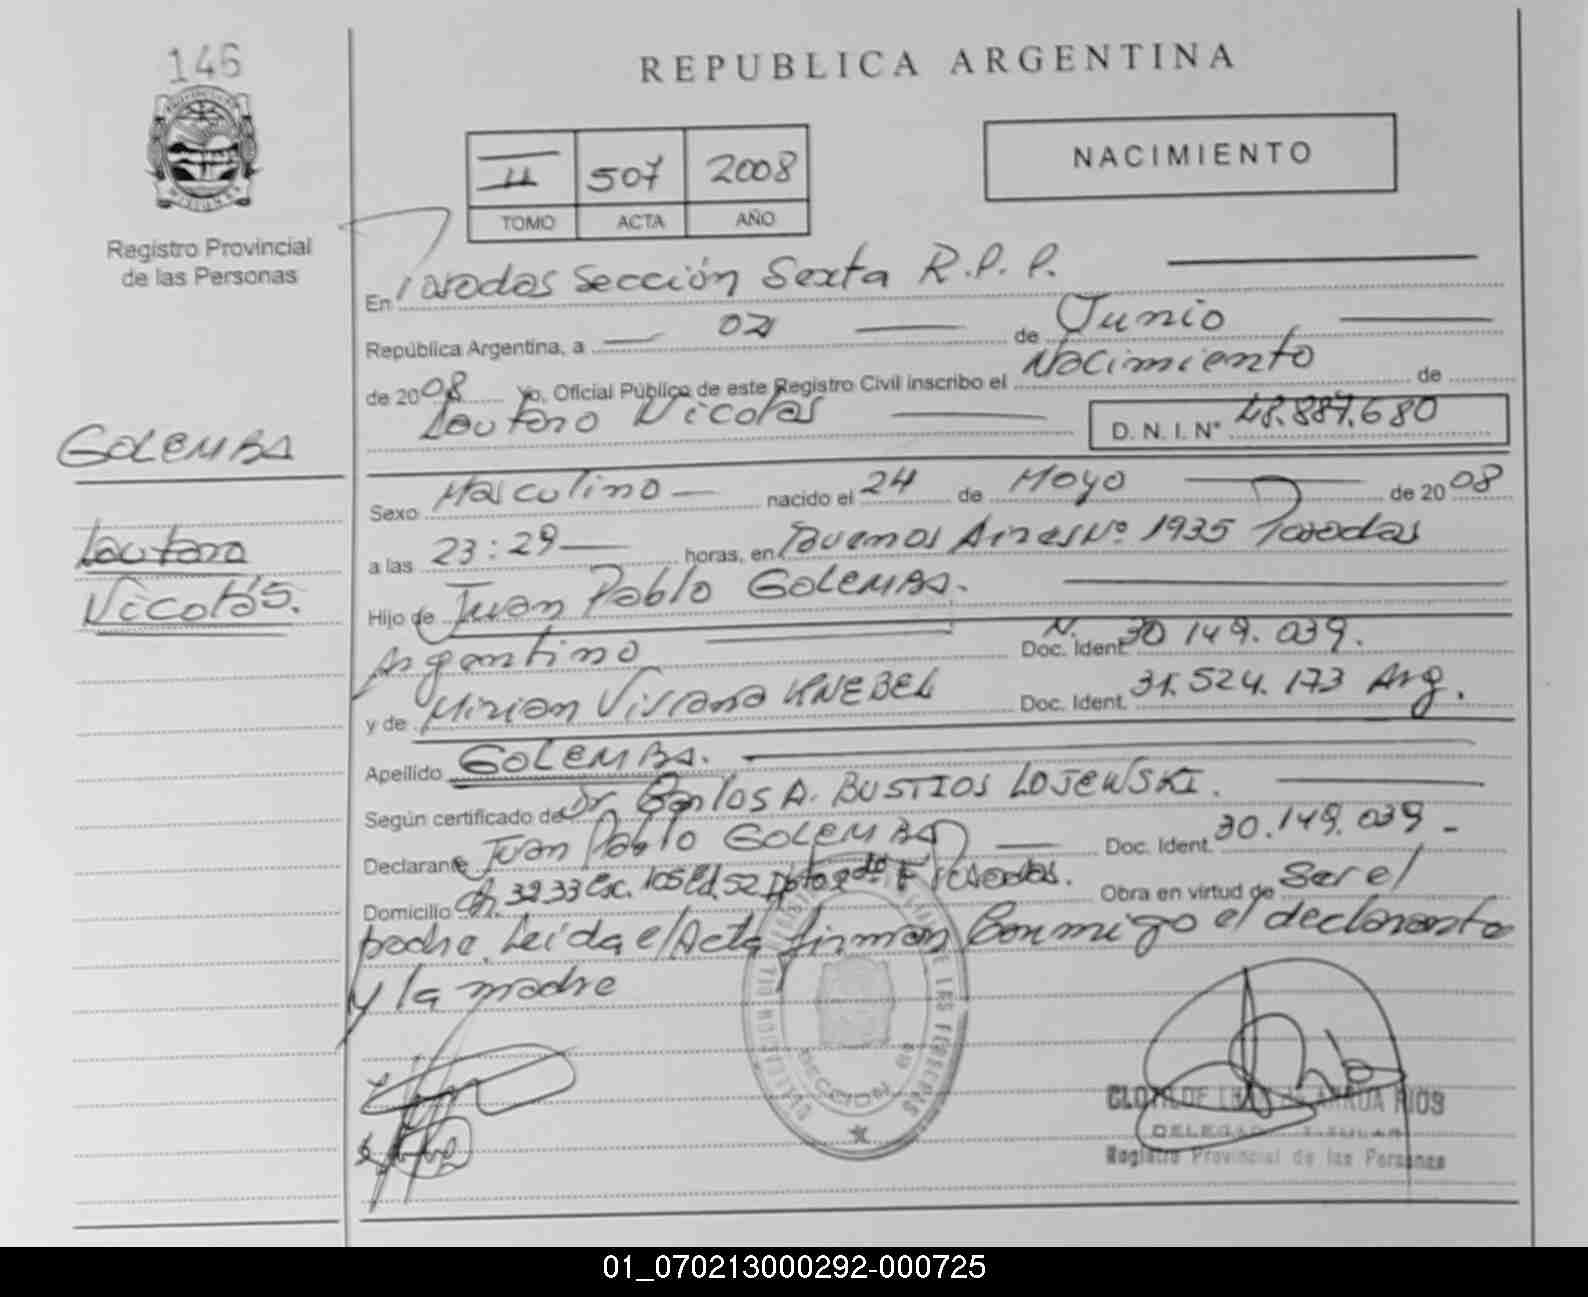 146
REPUBLICA ARGENTINA
II 507 2008
TOMO ACTA AÑO
NACIMIENTO
Registro Provincial
de las Personas
En Posadas Sección Sexta R.P.P.
República Argentina, a 02 de Junio
de 2008 Yo, Oficial Público de este Registro Civil inscribo el Nacimiento de
Lautaro Nicolás D. N. I. N° 48.887.680
GOLEMBA
Lautaro
Nicolás.
Sexo Masculino nacido el 24 de Mayo de 2008
a las 23:29 horas, en Buenos Aires Nº 1935 Posadas
Hijo de Juan Pablo GOLEMBA.
Argentino Doc. Ident. N. 30 149.039.
y de Mirian Viviana KNEBEL Doc. Ident. 31.524.173 Arg.
Apellido GOLEMBA.
Según certificado de Dr. Carlos A. BUSTIOS LOJEWSKI.
Declarante Juan Pablo GOLEMBA Doc. Ident. 30.149.039 -
Domicilio Ch. 32.33 Esc. 105 Ed. 52 Posadas. Obra en virtud de Ser el
padre. Leída e/Acta firman Conmigo el declarante
y la madre
DELEGACION DE LAS PERSONAS
SECCION 6ª
CLOTILDE RIOS
DELEGADO TITULAR
Registro Provincial de las Personas
01_070213000292-000725